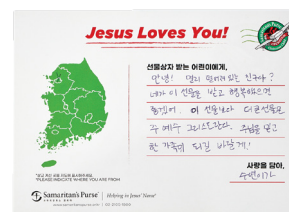 Jesus Loves You!
선물상자 받는 어린이에게,
안녕! 멀리 떨어져 있는 친구야?
네가 이 선물을 받고 행복했으면
좋겠어 이 선물보다 더 큰 선물은
예수 그리스도란다.
한 가족이 되길 바랄게!
사랑을 담아,
*PLEASE INDICATE WHERE YOU ARE FROM
Samaritan's Purse
Helping in Jesus' Name